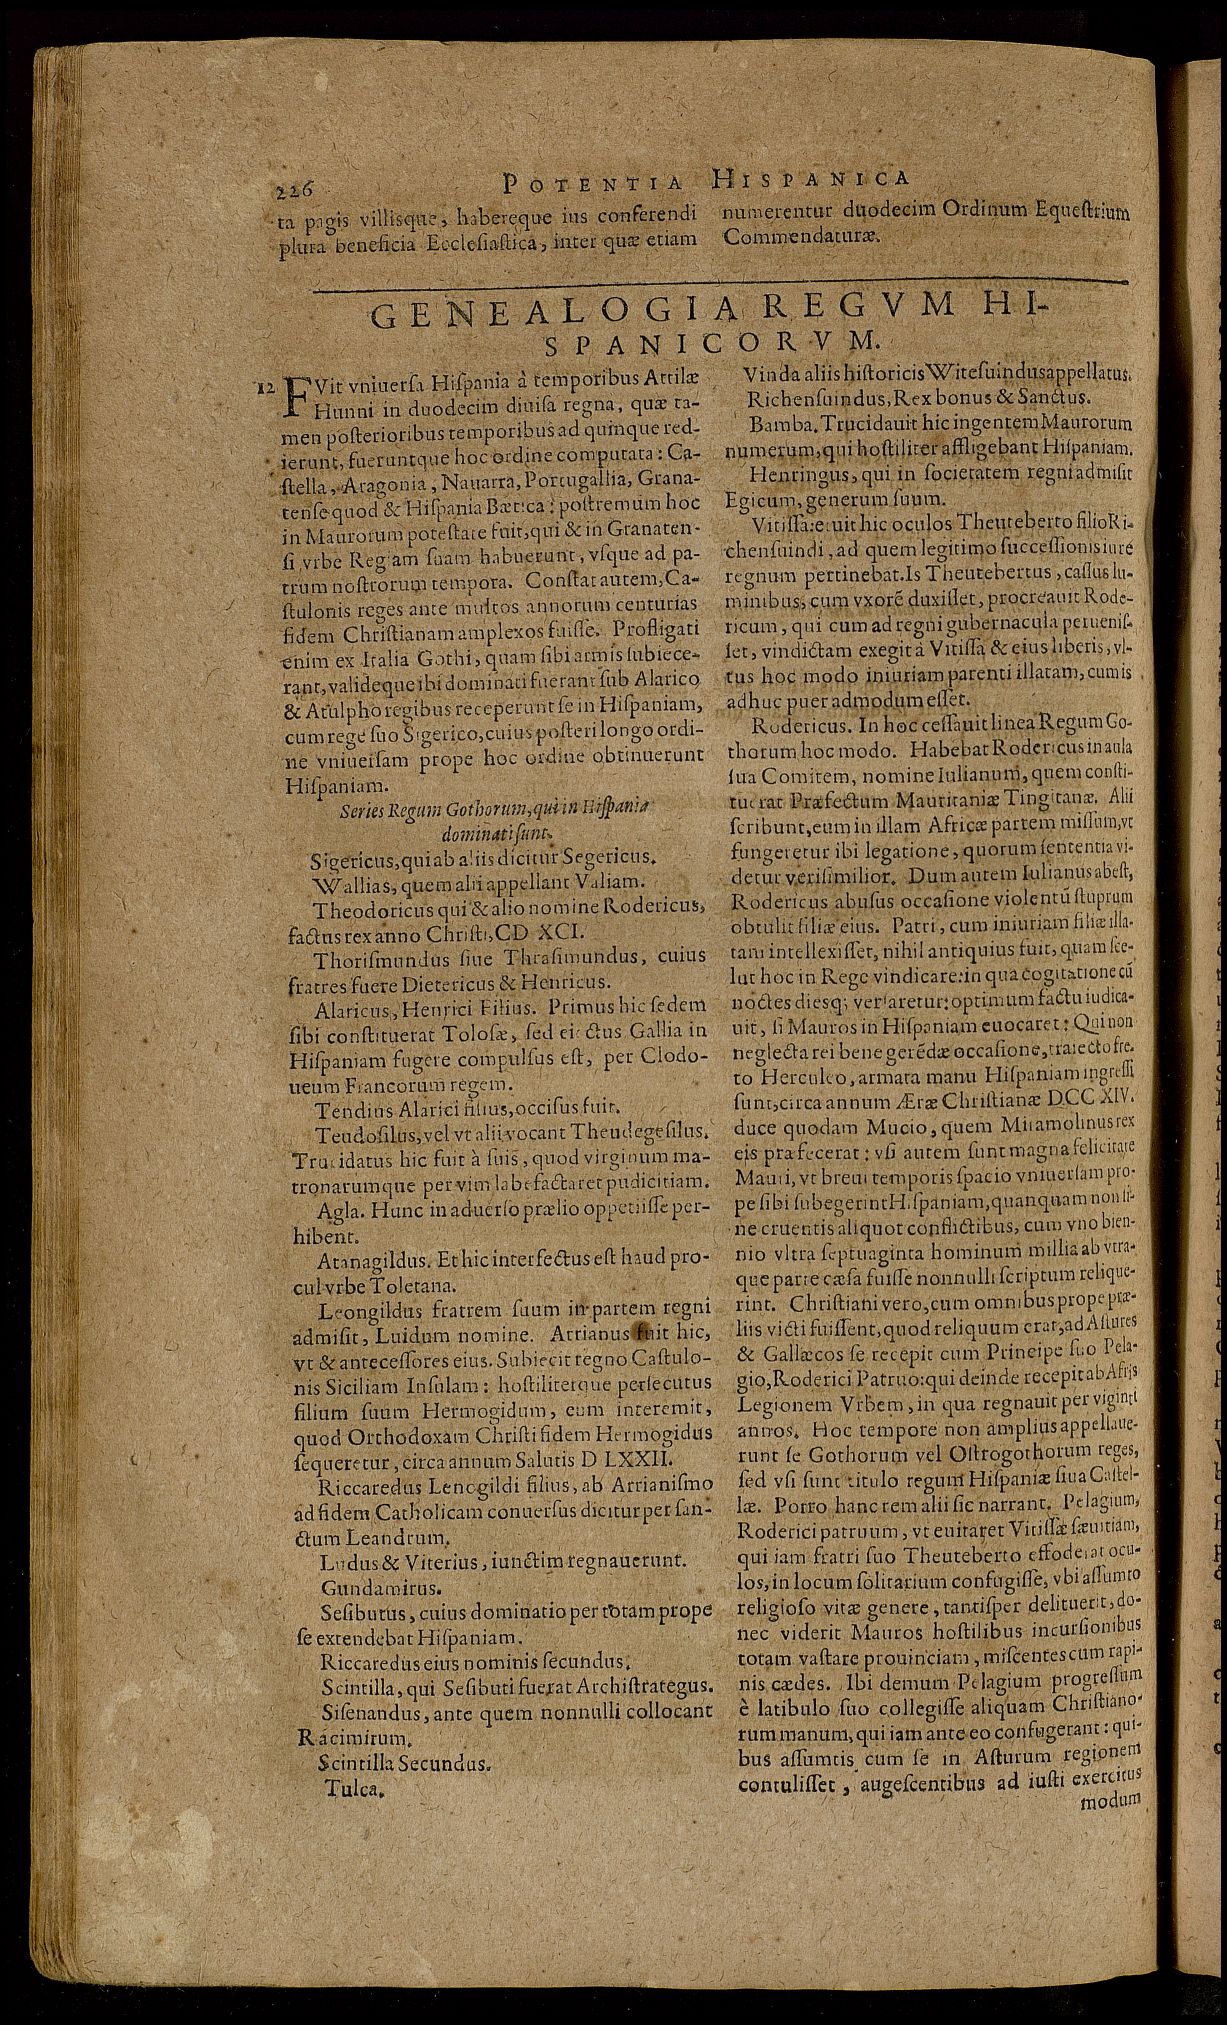 226 POTENTIA HISPANICA
ta pagis villisque, habereque ius conferendi
plura beneficia Ecclesiastica, inter quæ etiam
numerentur duodecim Ordinum Equestrium
Commendaturæ.
GENEALOGIA REGVM HI-
SPANICORVM.
12 FVit vniuersa Hispania à temporibus Attilæ
Hunni in duodecim diuisa regna, quæ ta-
men posterioribus temporibus ad quinque red-
ierunt, fueruntque hoc ordine computata: Ca-
stella, Aragonia, Nauarra, Portugallia, Grana-
tense quod & Hispania Bætica: postremum hoc
in Maurorum potestate fuit, qui & in Granaten-
si vrbe Regiam suam habuerunt, vsque ad pa-
trum nostrorum tempora. Constat autem, Ca-
stulonis reges ante multos annorum centurias
fidem Christianam amplexos fuisse. Profligati
enim ex Italia Gothi, quam sibi armis subiece-
rant, valideque ibi dominati fuerant sub Alarico
& Atulpho regibus receperunt se in Hispaniam,
cum rege suo Sigerico, cuius posteri longo ordi-
ne vniuersam prope hoc ordine obtinuerunt
Hispaniam.
Series Regum Gothorum, qui in Hispania
dominati sunt.
Sigericus, qui ab aliis dicitur Segericus.
Wallias, quem alii appellant Valiam.
Theodoricus qui & alio nomine Rodericus,
factus rex anno Christi, CD XCI.
Thorismundus siue Thrasimundus, cuius
fratres fuere Dietericus & Henricus.
Alaricus, Henrici Filius. Primus hic sedem
sibi constituerat Tolosæ, sed eiectus Gallia in
Hispaniam fugere compulsus est, per Clodo-
ueum Francorum regem.
Tendius Alarici filius, occisus fuit.
Teudosilus, vel vt alii vocant Theudegesilus.
Trucidatus hic fuit à suis, quod virginum ma-
tronarumque per vim labefactaret pudicitiam.
Agla. Hunc in aduerso prælio oppetiisse per-
hibent.
Atanagildus. Et hic interfectus est haud pro-
cul vrbe Toletana.
Leongildus fratrem suum in partem regni
admisit, Luidum nomine. Arrianus fuit hic,
vt & antecessores eius. Subiecit regno Castulo-
nis Siciliam Insulam: hostiliterque persecutus
filium suum Hermogidum, eum interemit,
quod Orthodoxam Christi fidem Hermogidus
sequeretur, circa annum Salutis D LXXII.
Riccaredus Lenogildi filius, ab Arrianismo
ad fidem Catholicam conuersus dicitur per san-
ctum Leandrum.
Ludus & Viterius, iunctim regnauerunt.
Gundamirus.
Sesibutus, cuius dominatio per totam prope
se extendebat Hispaniam.
Riccaredus eius nominis secundus.
Scintilla, qui Sesibuti fuerat Archistrategus.
Sisenandus, ante quem nonnulli collocant
Racimirum.
Scintilla Secundus.
Tulca.
Vinda aliis historicis Witesuindus appellatus.
Richensuindus, Rex bonus & Sanctus.
Bamba. Trucidauit hic ingentem Maurorum
numerum, qui hostiliter affligebant Hispaniam.
Henringus, qui in societatem regni admisit
Egicum, generum suum.
Vitissa: eruit hic oculos Theuteberto filio Ri-
chensuindi, ad quem legitimo successionis iure
regnum pertinebat. Is Theutebertus, cassus lu-
minibus, cum vxorẽ duxisset, procreauit Rode-
ricum, qui cum ad regni gubernacula peruenis-
set, vindictam exegit à Vitissa & eius liberis, vl-
tus hoc modo iniuriam parenti illatam, cum is
adhuc puer admodum esset.
Rodericus. In hoc cessauit linea Regum Go-
thorum hoc modo. Habebat Rodericus in aula
sua Comitem, nomine Iulianum, quem consti-
tuerat Præfectum Mauritaniæ Tingitanæ. Alii
scribunt, eum in illam Africæ partem missum, vt
fungeretur ibi legatione, quorum sententia vi-
detur verisimilior. Dum autem Iulianus abest,
Rodericus abusus occasione violentũ stuprum
obtulit filiæ eius. Patri, cum iniuriam filiæ illa-
tam intellexisset, nihil antiquius fuit, quam sce-
lut hoc in Rege vindicare: in qua cogitatione cũ
noctes diesq; versaretur: optimum factu iudica-
uit, si Mauros in Hispaniam euocaret: Qui non
neglecta rei bene gerẽdæ occasione, traiecto fre-
to Herculeo, armata manu Hispaniam ingressi
sunt, circa annum Æræ Christianæ DCC XIV.
duce quodam Mucio, quem Miramolinus rex
eis præfecerat: vsi autem sunt magna felicitate
Mauri, vt breui temporis spacio vniuersam pro-
pe sibi subegerint Hispaniam, quanquam non si-
ne cruentis aliquot conflictibus, cum vno bien-
nio vltra septuaginta hominum millia ab vtra-
que parte cæsa fuisse nonnulli scriptum relique-
rint. Christiani vero, cum omnibus prope præ-
liis victi fuissent, quod reliquum erat, ad Astures
& Gallæcos se recepit cum Principe suo Pela-
gio, Roderici Patruo: qui deinde recepit ab Afris
Legionem Vrbem, in qua regnauit per viginti
annos. Hoc tempore non amplius appellaue-
runt se Gothorum vel Ostrogothorum reges,
sed vsi sunt titulo regum Hispaniæ siua Castel-
læ. Porro hanc rem alii sic narrant. Pelagium,
Roderici patruum, vt euitaret Vitissæ sæuitiam,
qui iam fratri suo Theuteberto effoderat ocu-
los, in locum solitarium confugisse, vbi assumto
religioso vitæ genere, tantisper delituerit, do-
nec viderit Mauros hostilibus incursionibus
totam vastare prouinciam, miscentes cum rapi-
nis cædes. Ibi demum Pelagium progressum
è latibulo suo collegisse aliquam Christiano-
rum manum, qui iam ante eo confugerant: qui-
bus assumtis cum se in Asturum regionem
contulisset, augescentibus ad iusti exercitus
modum